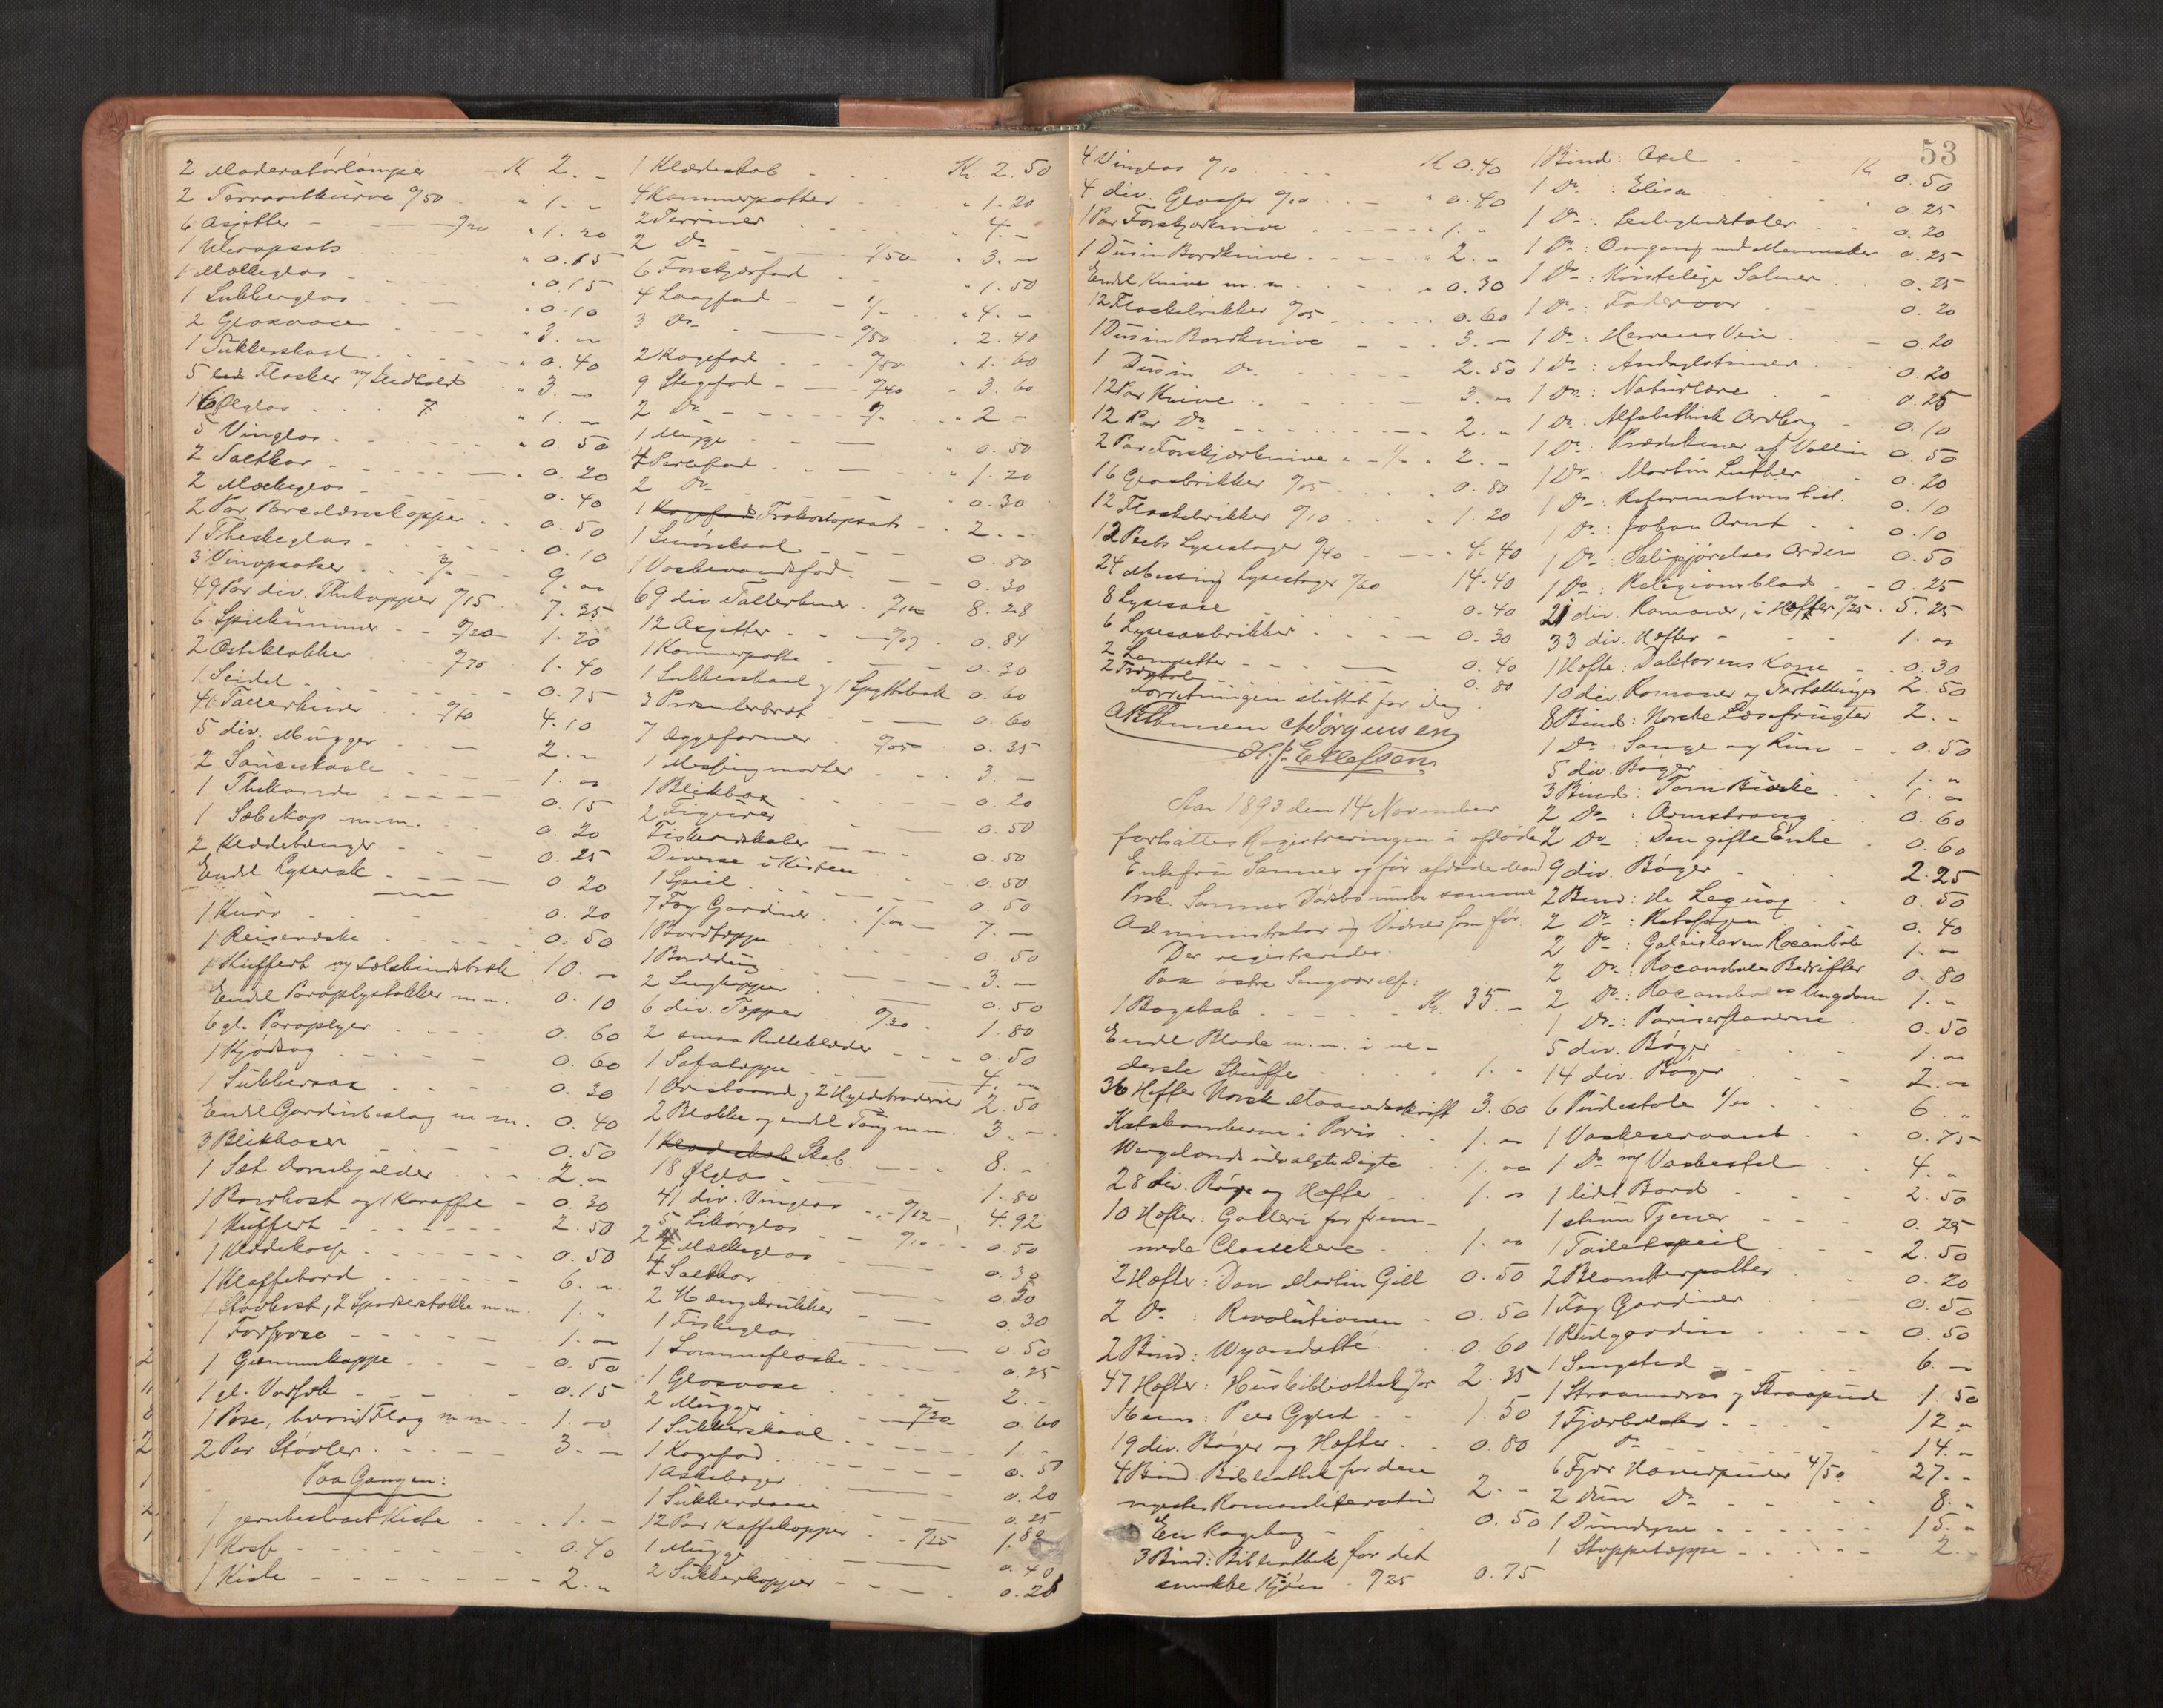 2 Moderatørlamper - K 2. -
2 Terravitkurve 0/50 " 1. -
6 Asjetter - 0/20 " 1. 20
1 Uhropsats " 0. 15
1 Melkeglas - " 0. 15
1 Sukkerglas - " 0. 10
2 Glasvaser " 3. -
1 Sukkerskaal " 0. 40
5 Flasker m/ Indhold " 3. -
16 Ølglas " 1. -
5 Vinglas " 0. 50
2 Saltkar 0. 20
2 Melkeglas 0. 40
2 Par Porcelænskopper 0. 50
1 Theskeglas 0. 10
3 Vinopsatser 3/- 9. -
49 Par div. Thekopper 0/15 7. 35
6 Spilkummer 0/20 1. 20
2 Osteklokker 0/70 1. 40
1 Seidel 0. 75
41 Tallerkener 0/10 4. 10
5 div. Mugger 2. -
2 Sauceskaale 1. -
1 Thekande 0. 15
1 Sæbekop m.m. 0. 20
2 Klædebænger 0. 25
Endel Lyserak 0. 20
1 Kurv 0. 20
1 Reiseveske 0. 50
1 Kuffert m/ Sølvbindsbræk 10. -
Endel Paraplystokker m.m. 0. 10
6 gl. Paraplyer 0. 60
1 Kjødsag 0. 60
1 Sukkersax 0. 30
Endel Gardinbeslag m.m. 0. 40
3 Blikboxer 0. 50
1 Sæt Dombjælder 2. -
1 Bordkost og 1 Karaffel 0. 30
1 Kuffert 2. 50
1 Klædekost 0. 50
1 Klaffebord 6. -
1 Støvkost, 2 Spadserstokke m.m. 1. -
1 Fodpose 1. -
1 Gummikappe 0. 50
1 gl. Vadsæk 0. 15
1 Pose, hvori Flag m.m. 1. -
2 Par Støvler 3. -
Paa Gangen:
1 jernbeslaaet Kiste 1. -
1 Kost 0. 40
1 Kiste 2. -
1 Klædeskab Kr. 2. 50
4 Kammerpotter " 1. 20
2 Terriner 4. -
2 Do 1/50 " 3. -
6 Forskjærfad " 1. 50
4 Laagfad 1/- " 4. -
3 Do 0/80 " 2. 40
2 Kagefad 0/80 " 1. 60
9 Stegefad 0/40 " 3. 60
2 Do " 2 -
1 Mugge " 0. 50
4 Perlefad " 1. 20
2 Do 0. 30
1 Kagefad Frokostopsats 2. -
1 Smørskaal 0. 80
1 Vaskevandsfad 0. 30
69 div Tallerkener 0/12 8. 28
12 Asjetter 0/07 0. 84
1 Kammerpotte 0. 30
1 Sukkerskaal og 1 Spyttebak 0. 60
3 Presenterbræt 0. 60
7 Æggeformer 0/05 0. 35
1 Messingmorter 3. -
1 Blikbox 0. 20
2 Figurer 0. 50
Fiskeredskaber m.m. 0. 50
Diverse i Kisten 0. 50
1 Speil 0. 50
7 Fag Gardiner 1/00 7. -
1 Bordteppe 0. 50
1 Borddug 3. -
2 Sengtepper 0. 50
6 div. Tepper 0/30 1. 80
2 smaa Rulleklæder 0. 50
1 Sofateppe 4. -
1 Avisbaand og 2 Hyldebroderier 2. 50
2 Blokke og endel Taug m.m. 3. -
1 Klædeskab Skab 8. -
18 Ølglas 1. 80
41 div. Vinglas 0/12 4. 92
5 Likørglas 0/10 0. 50
2 Melkeglas 0. 30
4 Saltkar 0. 20
2 Hængekrukker 0. 30
1 Fiskeglas 0. 50
1 Lommeflaske 0. 25
1 Glasvase 2. -
2 Mugger 0/30 0. 60
1 Sukkerskaal 1. -
1 Kagefad 0. 50
1 Askebæger 0. 20
1 Sukkerdaase 0. 25
12 Par Kaffekopper 0/25 1. 80
1 Mugge 0. 40
2 Sukkerkopper 0. 20
53
4 Vinglas 0/10 K 0. 40
4 div. Glasse 0/10 " 0. 40
1 Par Forskjærknive " 1. "
1 Dusin Bordknive " 2. -
Endel Knive m.m. " 0. 30
12 Flaskebrikker 0/05 0. 60
1 Dusin Bordknive 3. -
1 Dusin Do 2. 50
12 Par Knive 3. -
12 Par Do 2. -
2 Par Forskjærknive 1/- " 2. -
16 Glasbrikker 0/05 0. 80
12 Flaskebrikker 0/10 " 1. 20
12 Plets Lysestager 0/40 4. 40
24 Messing Lysestager 0/60 14. 40
8 Lysesaxe 0. 40
6 Lysesaxbrikker 0. 30
2 Lampetter 0. 40
2 0. 80
Forretningen sluttet for idag.
N. Thunem A Jørgensen
H. J. Ellefsen
Aar 1893 den 14 November
fortsattes Registreringen i afdøde
Enkefru Sannes og før afdøde Mand
Prok. Sannes Dødsbo under samme
Administrator og Vidner som før.
Der registreredes:
Paa østre Sengværelse:
1 Bogskab Kr. 35. -
Endel Blade m.m. i ne-
derste Skuffe 1. -
36 Hefter Norsk Maanedsskrift 3. 60
Katakomberne i Paris 1. -
Wergelands udvalgte Digte 1. -
28 div. Bøge og Hefter 1. -
10 Hefter: Galleri for frem-
mede Classikere 1. -
2 Hefter: Don Martin Gill 0. 50
2 Do : Revolutionen 0. 50
2 Bind: Wyandotté 0. 60
47 Hefter: Husbibliothek 0/05 2. 35
Ibsens: Peer Gynt 1. 50
19 div. Bøger og Hefter 0. 80
4 Bind: Bibliothek for den
nyeste Romanliteratur 2. -
En Kogebog 0. 50
3 Bind: Bibliothek for det
smukke Kjøn 0/25 0. 75
1 Bind: Axel K 0. 50
1 Do : Elisa 0. 25
1 Do : Leilighedstaler 0. 20
1 Do : Omgang med Mennesker 0. 25
1 Do : Kristelige Salmer 0. 25
1 Do : Fadervor 0. 20
1 Do : Herrens Vein 0. 20
1 Do : Andagtstimer 0. 20
1 Do : Naturlære 0. 25
1 Do : Alfabethisk Ordbog 0. 10
1 Do : Prædikener af Vallin 0. 50
1 Do : Martin Luther 0. 20
1 Do : Reformations hist. 0. 10
1 Do : Johan Arnt 0. 10
1 Do : Saliggjørelses Orden 0. 50
1 Do : Religionsblad 0. 25
21 div. Romaner, i Hefter 0/25 5. 25
33 div. Hefter 1. -
1 Hefte: Doktorens Kone 0. 30
10 div. Romaner og Fortællinger 2. 50
8 Bind: Norske Læsefrugter 2. -
1 Do : Sange og Rim 0. 50
5 div. Bøger 1. -
3 Bind: Tom 1. -
2 Do : Armstrong 0. 60
2 Do : Den gifte Enke 0. 60
9 div. Bøger 2. 25
2 Bind: 0. 50
2 Do : 0. 40
2 Do : Galeislaven Rocambole 1. -
2 Do : Rocamboles Bedrifter 0. 80
2 Do : Rocamboles Ungdom 1. -
1 Do : Pariserstaverne 0. 50
5 div. Bøger 1. -
14 div. Bøger 2. -
6 Pindestole 1/00 6. -
1 Vaskeservant 0. 75
1 Do m/ Vaskestel 4. -
1 lidet Bord 2. 50
1 stum Tjener 0. 25
1 Toiletspeil 2. 50
2 Blomsterpotter 0. 20
1 Fag Gardiner 0. 50
1 Rulgardin 0. 50
1 Sengsted 6. -
1 Straamadras og Straapude 1. 50
1 Fjærbolster 12. -
1 Do 14. -
6 Fjær Hovedpuder 4/50 27. -
2 Dun Do 8. -
1 Dundyne 15. -
1 Stoppeteppe 2. -